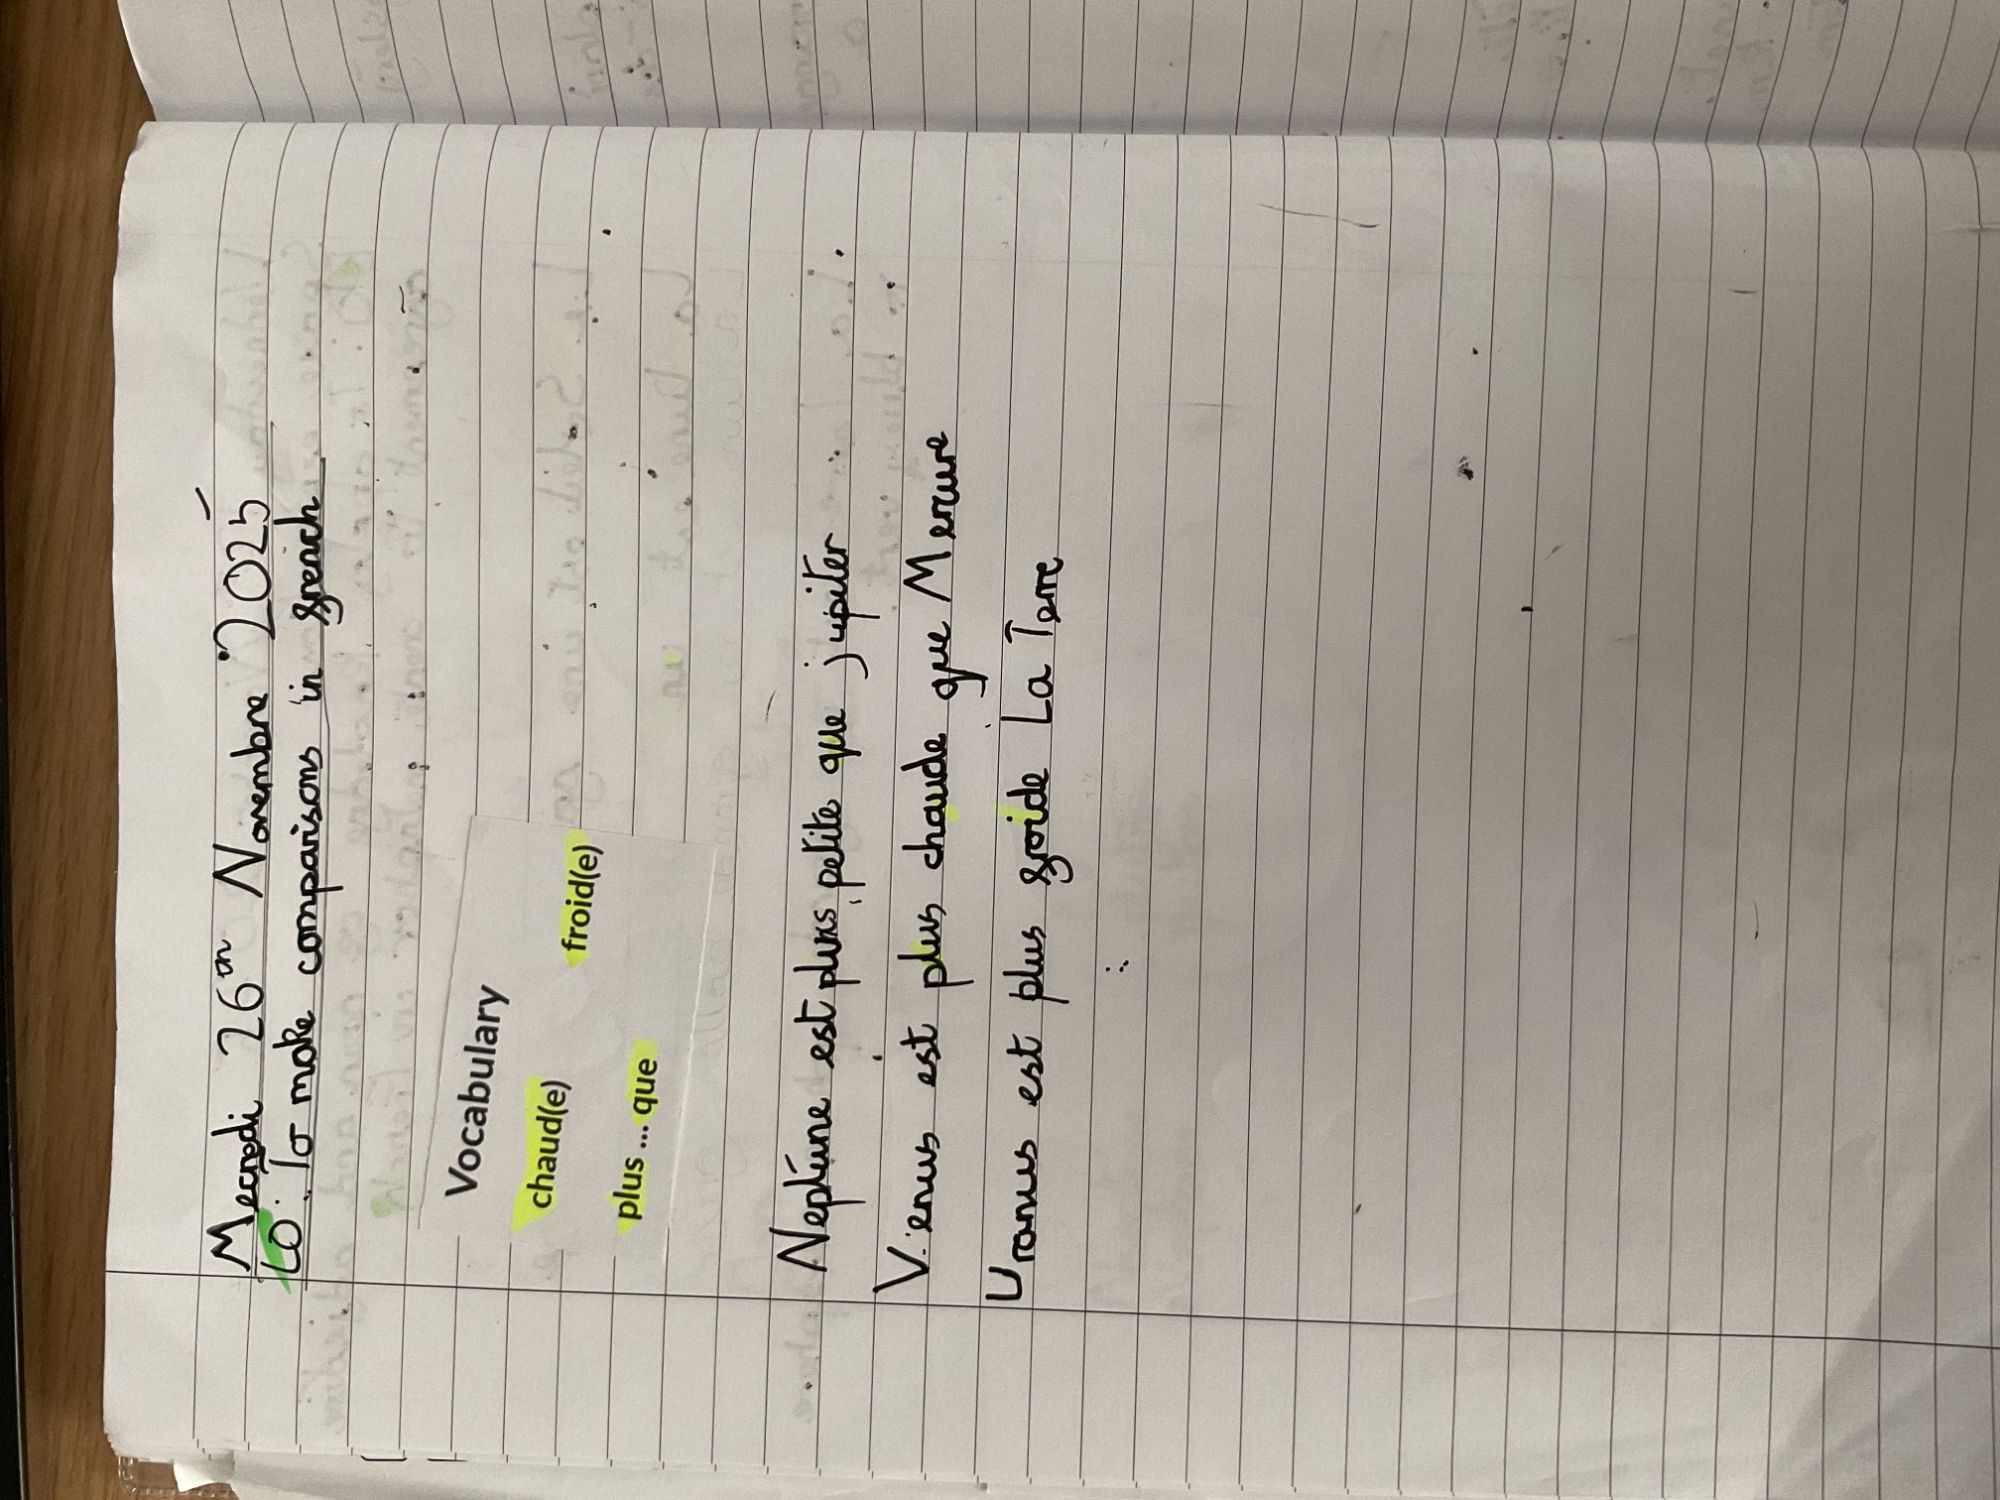 Mecredi 26th Novembre 2025
LO: To make comparisons in french
Vocabulary
chaud(e) froid(e)
plus ... que
Neptune est plus petite que jupiter
Venus est plus chaude que Mercure
Uranus est plus froide La Terre